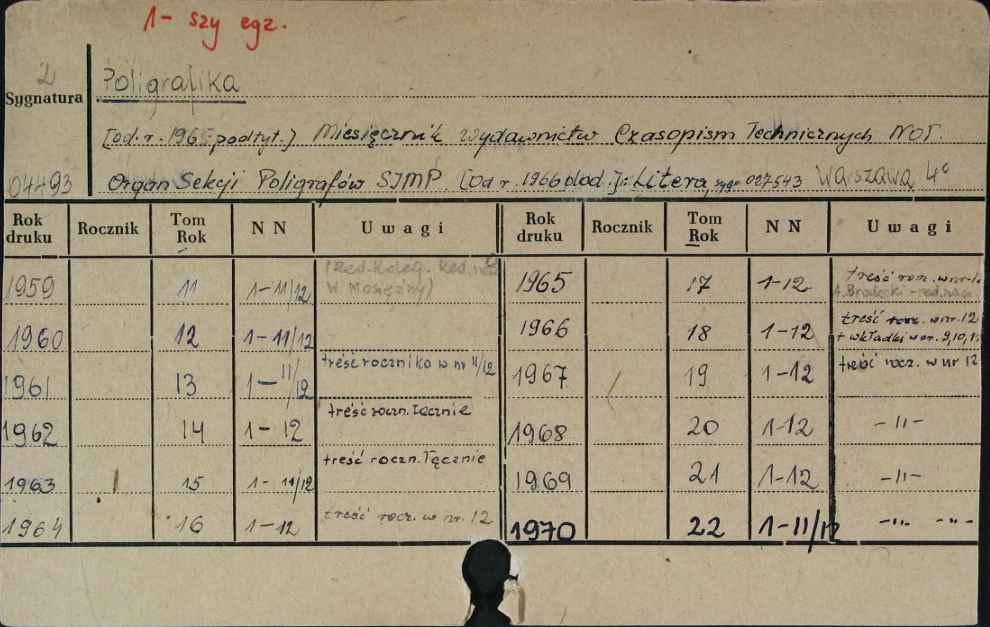 1- szy egz.
2
Sygnatura
Poligrafika
[od. r. 1965 podtyt.] Miesięcznik Wydawnictw Czasopism Technicznych NOT.
04493
Organ Sekcji Poligrafów SIMP. [Od r. 1966 dod.]: Litera, sygn. 027543 Warszawa, 4°
Rok druku Rocznik Tom Rok NN Uwagi Rok druku Rocznik Tom Rok NN Uwagi
1959 11 1-11/12 W Mosiężny) 1965 17 1-12 treść rocz. w nr
1960 12 1-11/12 1966 18 1-12 treść rocz. w nr. 12
+ wkładki w nr. 9,10,
1961 13 1-11/12 treść rocznika w nr 11/12 1967 19 1-12 treść rocz. w nr 12
1962 14 1-12 treść roczn. łącznie 1968 20 1-12 -"-
1963 15 1-11/12 treść roczn. łącznie 1969 21 1-12 -"-
1964 16 1-12 treść rocz. w nr. 12 1970 22 1-11/12 -"- -"-